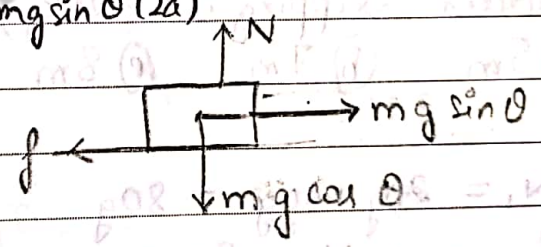 mg sin θ (2a)
N
mg sin θ
f
mg cos θ